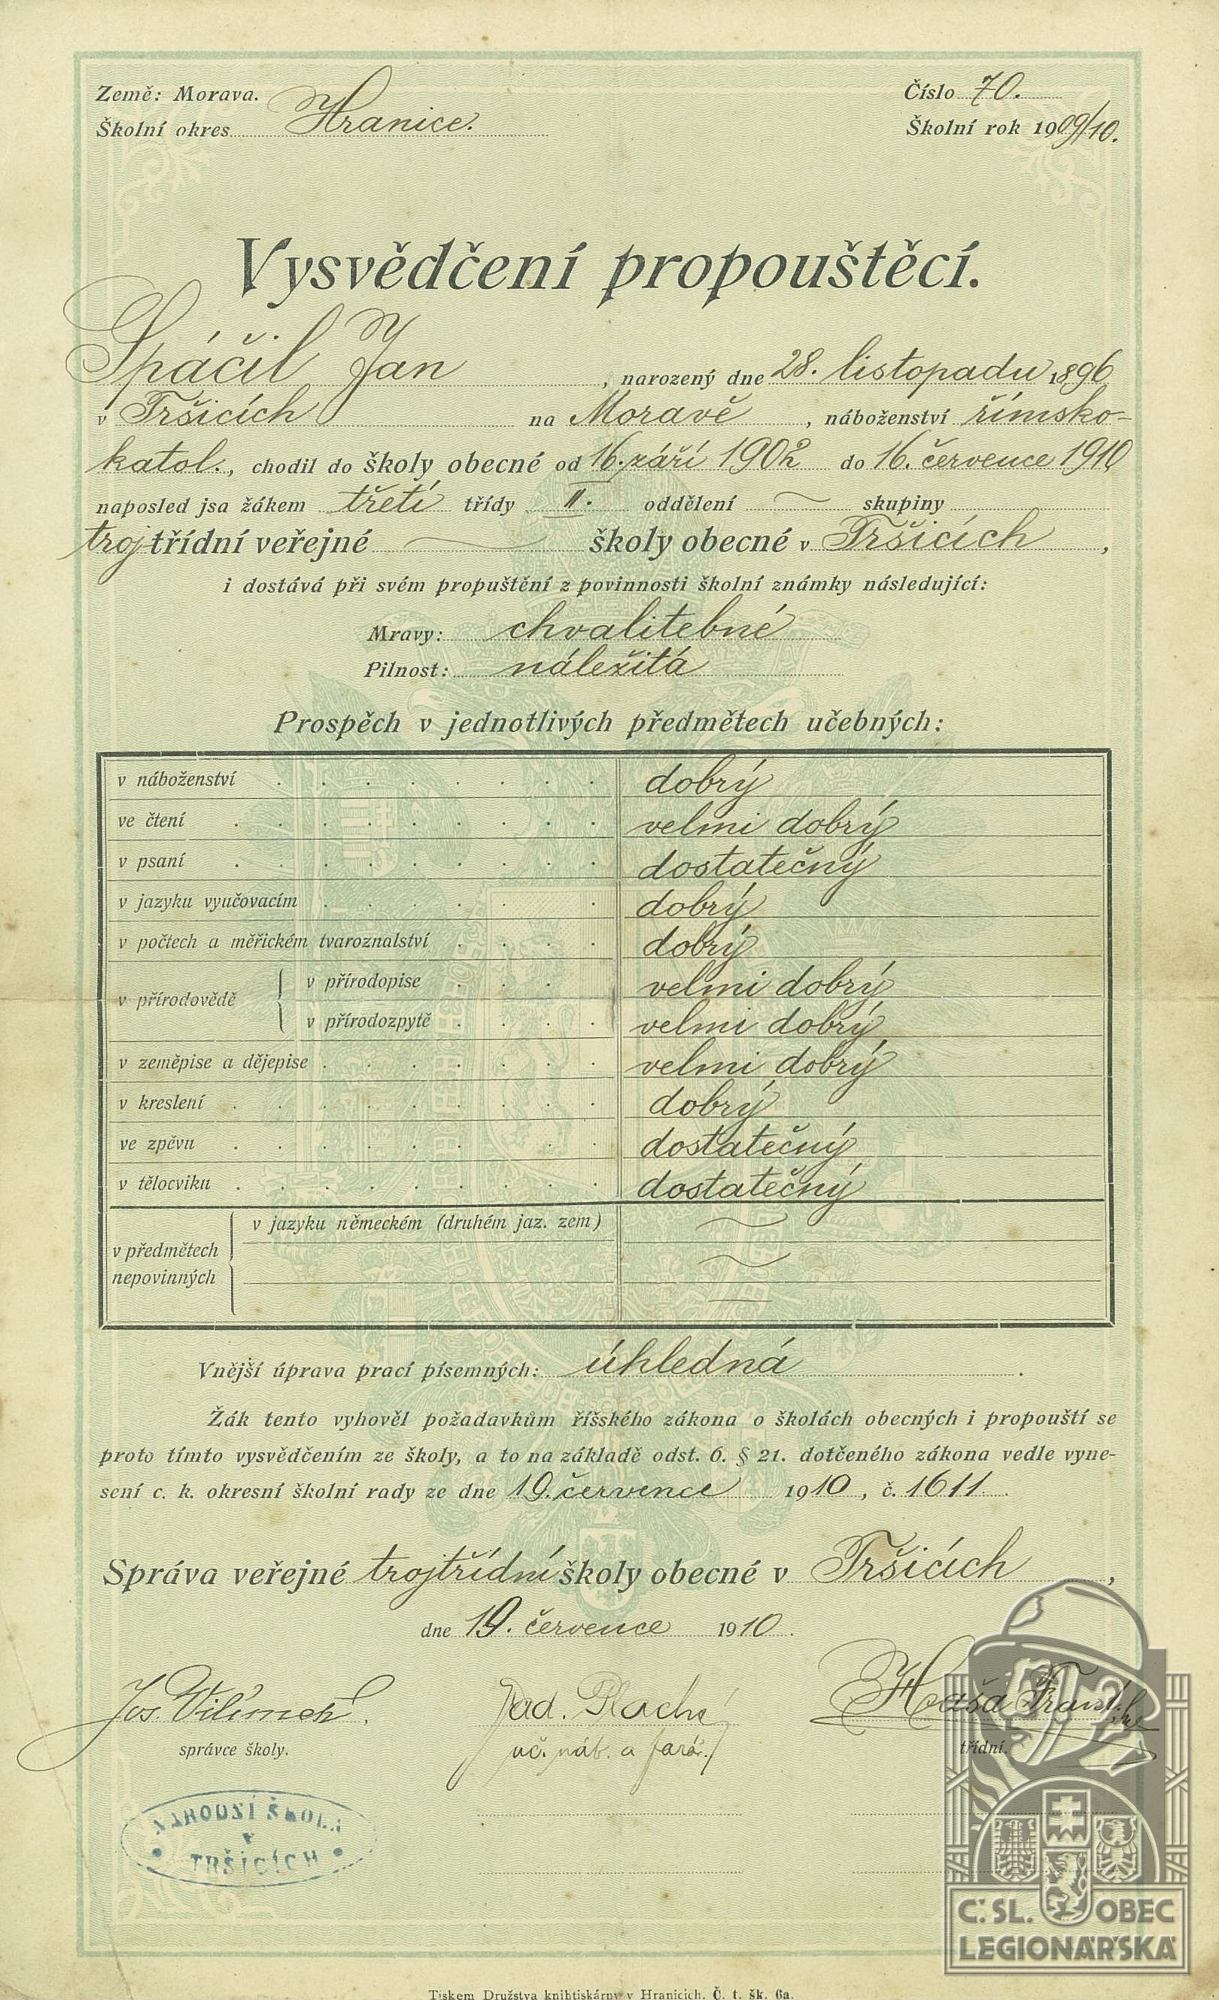 Země: Morava.
Číslo 70.
Školní okres Hranice.
Školní rok 1909/10.
Vysvědčení propouštěcí.
Spáčil Jan, narozený dne 28. listopadu 1896
v Tršicích na Moravě, náboženství římsko-
katol., chodil do školy obecné od 16. září 1902 do 16. července 1910
naposled jsa žákem třetí třídy II. oddělení skupiny
trojtřídní veřejné školy obecné v Tršicích,
i dostává při svém propuštění z povinnosti školní známky následující:
Mravy: chvalitebné
Pilnost: náležitá
Prospěch v jednotlivých předmětech učebných:
v náboženství dobrý
ve čtení velmi dobrý
v psaní dostatečný
v jazyku vyučovacím dobrý
v počtech a měřickém tvaroznalství dobrý
v přírodovědě
v přírodopise velmi dobrý
v přírodozpytě velmi dobrý
v zeměpise a dějepise velmi dobrý
v kreslení dobrý
ve zpěvu dostatečný
v tělocviku dostatečný
v předmětech nepovinných
v jazyku německém (druhém jaz. zem)
Vnější úprava prací písemných: úhledná.
Žák tento vyhověl požadavkům říšského zákona o školách obecných i propouští se
proto tímto vysvědčením ze školy, a to na základě odst. 6. § 21. dotčeného zákona vedle vyne-
sení c. k. okresní školní rady ze dne 19. července 1910, č. 1611.
Správa veřejné trojtřídní školy obecné v Tršicích,
dne 19. července 1910.
Jos.
Plachý
Haša Frant.
správce školy.
uč. náb. a farář.
třídní.
NÁRODNÍ ŠKOLA
V
TRŠICÍCH
Č. SL. OBEC
LEGIONÁŘSKÁ
Tiskem Družstva knihtiskárny v Hranicích. Č. t. šk. 6a.